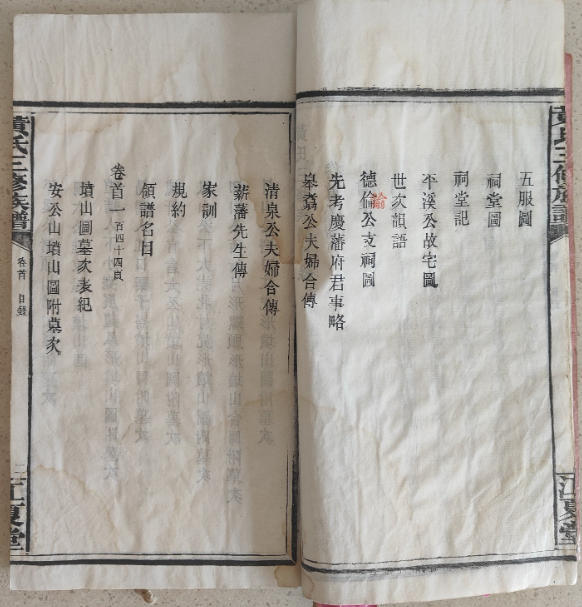 五服圖
祠堂圖
祠堂記
平溪公故宅圖
世次韻語
德倫公支祠圖
先考慶藩府君事略
公夫婦合傳
清泉公夫婦合傳
薪藩先生傳
家訓
規約
領譜名目
卷首一百四十四頁
墳山圖墓次表紀
安公山墳山圖附墓次
黃氏三修族譜
卷首 目錄
二
江夏堂
黃氏三修族譜
江夏堂